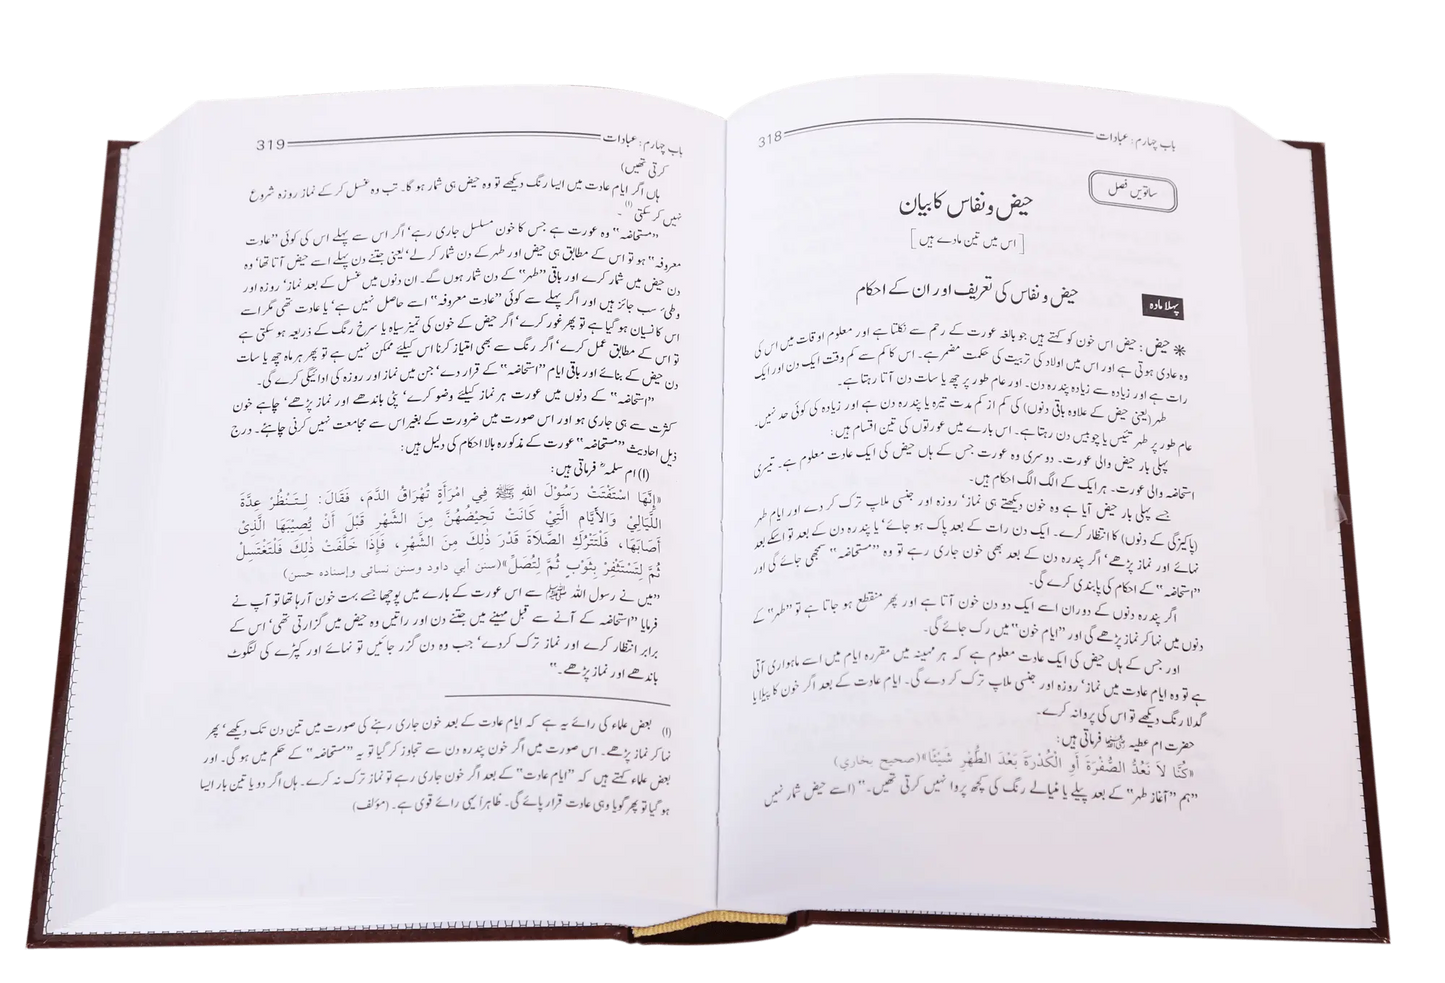 باب چہارم: عبادات 318
ساتویں فصل
حیض و نفاس کا بیان
[اس میں تین مادے ہیں]
پہلا مادہ
حیض و نفاس کی تعریف اور ان کے احکام
❋ حیض: حیض اس خون کو کہتے ہیں جو بالغہ عورت کے رحم سے نکلتا ہے اور معلوم اوقات میں اس کی
وہ عادی ہوتی ہے اور اس میں اولاد کی تربیت کی حکمت مضمر ہے۔ اس کا کم سے کم وقت ایک دن اور ایک
رات ہے اور زیادہ سے زیادہ پندرہ دن۔ اور عام طور پر چھ یا سات دن آتا رہتا ہے۔
طہر (یعنی حیض کے علاوہ باقی دنوں) کی کم از کم مدت تیرہ یا پندرہ دن ہے اور زیادہ کی کوئی حد نہیں۔
عام طور پر طہر تئیس یا چوبیس دن رہتا ہے۔ اس بارے میں عورتوں کی تین اقسام ہیں:
پہلی بار حیض والی عورت۔ دوسری وہ عورت جس کے ہاں حیض کی ایک عادت معلوم ہے۔ تیسری
استحاضہ والی عورت۔ ہر ایک کے الگ الگ احکام ہیں۔
جسے پہلی بار حیض آیا ہے وہ خون دیکھتے ہی نماز‘ روزہ اور جنسی ملاپ ترک کر دے اور ایام طہر
(پاکیزگی کے دنوں) کا انتظار کرے۔ ایک دن رات کے بعد پاک ہو جائے‘ یا پندرہ دن کے بعد تو اسکے بعد
نہائے اور نماز پڑھے‘ اگر پندرہ دن کے بعد بھی خون جاری رہے تو وہ ’’مستحاضہ‘‘ سمجھی جائے گی اور
’’استحاضہ‘‘ کے احکام کی پابندی کرے گی۔
اگر پندرہ دنوں کے دوران اسے ایک دو دن خون آتا ہے اور پھر منقطع ہو جاتا ہے تو ’’طہر‘‘ کے
دنوں میں نہا کر نماز پڑھے گی اور ’’ایام خون‘‘ میں رک جائے گی۔
اور جس کے ہاں حیض کی ایک عادت معلوم ہے کہ ہر مہینہ میں مقررہ ایام میں اسے ماہواری آتی
ہے تو وہ ایام عادت میں نماز‘ روزہ اور جنسی ملاپ ترک کر دے گی۔ ایام عادت کے بعد اگر خون کا پیلا یا
گدلا رنگ دیکھے تو اس کی پروا نہ کرے۔
حضرت ام عطیہ رضی اللہ عنہا فرماتی ہیں:
«كُنَّا لاَ نَعُدُّ الصُّفْرَةَ أَوِ الْكُدْرَةَ بَعْدَ الطُّهْرِ شَيْئًا»(صحيح بخاري)
’’ہم ’’آغاز طہر‘‘ کے بعد پیلے یا مٹیالے رنگ کی کچھ پروا نہیں کرتی تھیں۔‘‘ (اسے حیض شمار نہیں
باب چہارم: عبادات 319
کرتی تھیں)
ہاں اگر ایام عادت میں ایسا رنگ دیکھے تو وہ حیض ہی شمار ہو گا۔ تب وہ غسل کر کے نماز روزہ شروع
نہیں کر سکتی(۱)۔
’’مستحاضہ‘‘ وہ عورت ہے جس کا خون مسلسل جاری رہے‘ اگر اس سے پہلے اس کی کوئی ’’عادت
معروفہ‘‘ ہو تو اس کے مطابق ہی حیض اور طہر کے دن شمار کر لے‘ یعنی جتنے دن پہلے اسے حیض آتا تھا‘ وہ
دن حیض میں شمار کرے اور باقی ’’طہر‘‘ کے دن شمار ہوں گے۔ ان دنوں میں غسل کے بعد نماز‘ روزہ اور
وطی‘ سب جائز ہیں اور اگر پہلے سے کوئی ’’عادت معروفہ‘‘ اسے حاصل نہیں ہے‘ یا عادت تھی مگر اسے
اس کا نسیان ہو گیا ہے تو پھر غور کرے‘ اگر حیض کے خون کی تمیز سیاہ یا سرخ رنگ کے ذریعہ ہو سکتی ہے
تو اس کے مطابق عمل کرے‘ اگر رنگ سے بھی امتیاز کرنا اس کیلئے ممکن نہیں ہے تو پھر ہر ماہ چھ یا سات
دن حیض کے بنائے اور باقی ایام ’’استحاضہ‘‘ کے قرار دے‘ جن میں نماز اور روزہ کی ادائیگی کرے گی۔
’’استحاضہ‘‘ کے دنوں میں عورت ہر نماز کیلئے وضو کرے‘ پٹی باندھے اور نماز پڑھے‘ چاہے خون
کثرت سے ہی جاری ہو اور اس صورت میں ضرورت کے بغیر اس سے مجامعت نہیں کرنی چاہئے۔ درج
ذیل احادیث ’’مستحاضہ‘‘ عورت کے مذکورہ بالا احکام کی دلیل ہیں:
(۱) ام سلمہؓ فرماتی ہیں:
«إِنَّهَا اسْتَفْتَتْ رَسُوْلَ اللهِ ﷺ فِي امْرَأَةٍ تُهْرَاقُ الدَّمَ، فَقَالَ: لِتَنْظُرْ عِدَّةَ
اللَّيَالِيْ وَالأَيَّامِ الَّتِيْ كَانَتْ تَحِيْضُهُنَّ مِنَ الشَّهْرِ قَبْلَ أَنْ يُصِيْبَهَا الَّذِىْ
أَصَابَهَا، فَلْتَتْرُكِ الصَّلاَةَ قَدْرَ ذٰلِكَ مِنَ الشَّهْرِ، فَإِذَا خَلَّفَتْ ذٰلِكَ فَلْتَغْتَسِلْ
ثُمَّ لِتَسْتَثْفِرْ بِثَوْبٍ ثُمَّ لِتُصَلِّ»(سنن أبي داود وسنن نسائى وإسناده حسن)
’’میں نے رسول اللہ ﷺ سے اس عورت کے بارے میں پوچھا جسے بہت خون آ رہا تھا تو آپ نے
فرمایا ’’استحاضہ کے آنے سے قبل مہینے میں جتنے دن اور راتیں وہ حیض میں گزارتی تھی‘ اس کے
برابر انتظار کرے اور نماز ترک کر دے‘ جب وہ دن گزر جائیں تو نہائے اور کپڑے کی لنگوٹ
باندھے اور نماز پڑھے۔‘‘
(۱) بعض علماء کی رائے یہ ہے کہ ایام عادت کے بعد خون جاری رہنے کی صورت میں تین دن تک دیکھے‘ پھر
نہا کر نماز پڑھے۔ اس صورت میں اگر خون پندرہ دن سے تجاوز کر گیا تو یہ ’’مستحاضہ‘‘ کے حکم میں ہو گی۔ اور
بعض علماء کہتے ہیں کہ ’’ایام عادت‘‘ کے بعد اگر خون جاری رہے تو نماز ترک نہ کرے۔ ہاں اگر دو یا تین بار ایسا
ہو گیا تو پھر گویا وہی عادت قرار پائے گی۔ ظاہراً یہی رائے قوی ہے۔ (مؤلف)